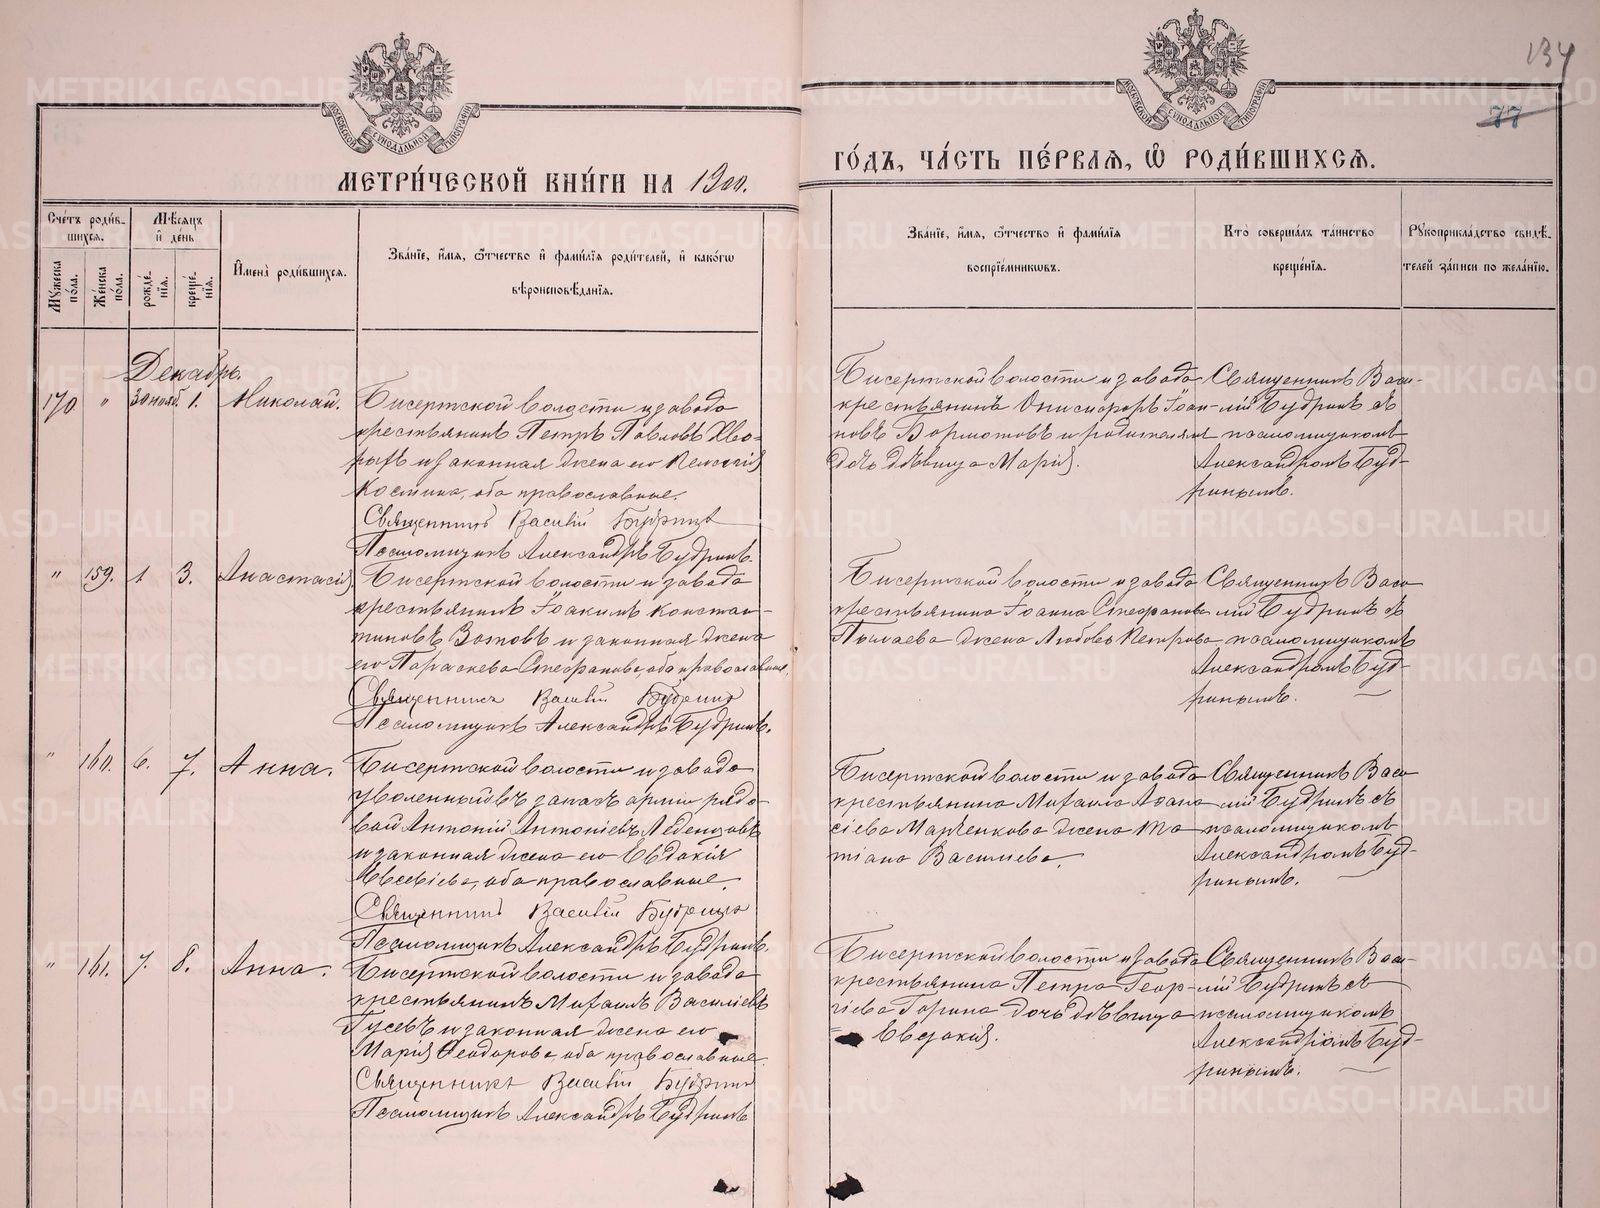 134
77
МОСКОВСКОЙ СѴНОДАЛЬНОЙ ТИПОГРАФІИ
МОСКОВСКОЙ СѴНОДАЛЬНОЙ ТИПОГРАФІИ
МЕТРИ́ЧЕСКОЙ КНИ́ГИ НА 1900.
ГО́ДЪ, ЧА́СТЬ ПЕ́РВАЯ, Ѡ҆ РОДИ́ВШИХСЯ.
Сче́тъ роди́в-
шихся.
Мꙋ́жеска по́ла.
Же́нска по́ла.
Мѣ́сяцъ
и҆ де́нь
рожде́-
нїя.
креще́-
нїя.
И҆мена̀ роди́вшихся.
Зва́нїе, и҆́мя, ѻ҆́тчество и҆ фами́лїя роди́телей, и҆ како́гѡ
вѣроисповѣ́данїя.
Зва́нїе, и҆́мя, ѻ҆́тчество и҆ фами́лїя
воспрїе́мникѡвъ.
Кто̀ соверша́лъ та́инство
креще́нїя.
Рꙋкоприкла́дство свидѣ́-
телей за́писи по жела́нїю.
Декабрь.
170 " 30 нояб. 1. Николай.
Бисертской волости и завода
крестьянинъ Петръ Павловъ Хво-
рыхъ и законная жена его
Костина, оба православные.
Священникъ Василій Будринъ
Псаломщикъ Александръ Будринъ.
Бисертской волости и завода
крестьянинъ Онисифоръ Іоан-
новъ Бормотовъ и родителям
дочь дѣвица Марія.
Священникъ Васи-
лій Будринъ съ
псаломщикомъ
Александромъ Буд-
ринымъ.
" 159. 1 3. Анастасія
Бисертской волости и завода
крестьянинъ Іоакимъ Констан-
тиновъ Зотовъ и законная жена
его Параскева Стефанова, оба православные,
Священникъ Василій Будринъ
Псаломщикъ Александръ Будринъ.
Бисертской волости и завода
крестьянина Іоанна Стефанова
Пылаева жена Любовь Петрова
Священникъ Васи
лій Будринъ съ
псаломщикомъ
Александромъ Буд-
ринымъ.
" 160. 6. 7. Анна.
Бисертской волости и завода
уволенный въ запасъ арміи рядо-
вой Антоній Антоніевъ Леденцовъ
и законная жена его Евдокія
Евсевіева, оба православные.
Священникъ Василій Будринъ
Псаломщикъ Александръ Будринъ.
Бисертской волости и завода
крестьянина Михаила Афана
сіева Марченкова жена Та-
тіана Васильева.
Священникъ Васи
лій Будринъ съ
псаломщикомъ
Александромъ Буд-
ринымъ.
" 161. 7. 8. Анна.
Бисертской волости и завода
крестьянинъ Михаилъ Василіевъ
Гусевъ и законная жена его
Марія Ѳеодорова, оба православные.
Священникъ Василій Будринъ
Псаломщикъ Александръ Будринъ
Бисертской волости и завода
крестьянина Петра Геор-
гіева Горина дочь дѣвица
Евдокія.
Священникъ Васи-
лій Будринъ съ
псаломщикомъ
Александромъ Буд-
ринымъ.
METRIKI.GASO-URAL.RU